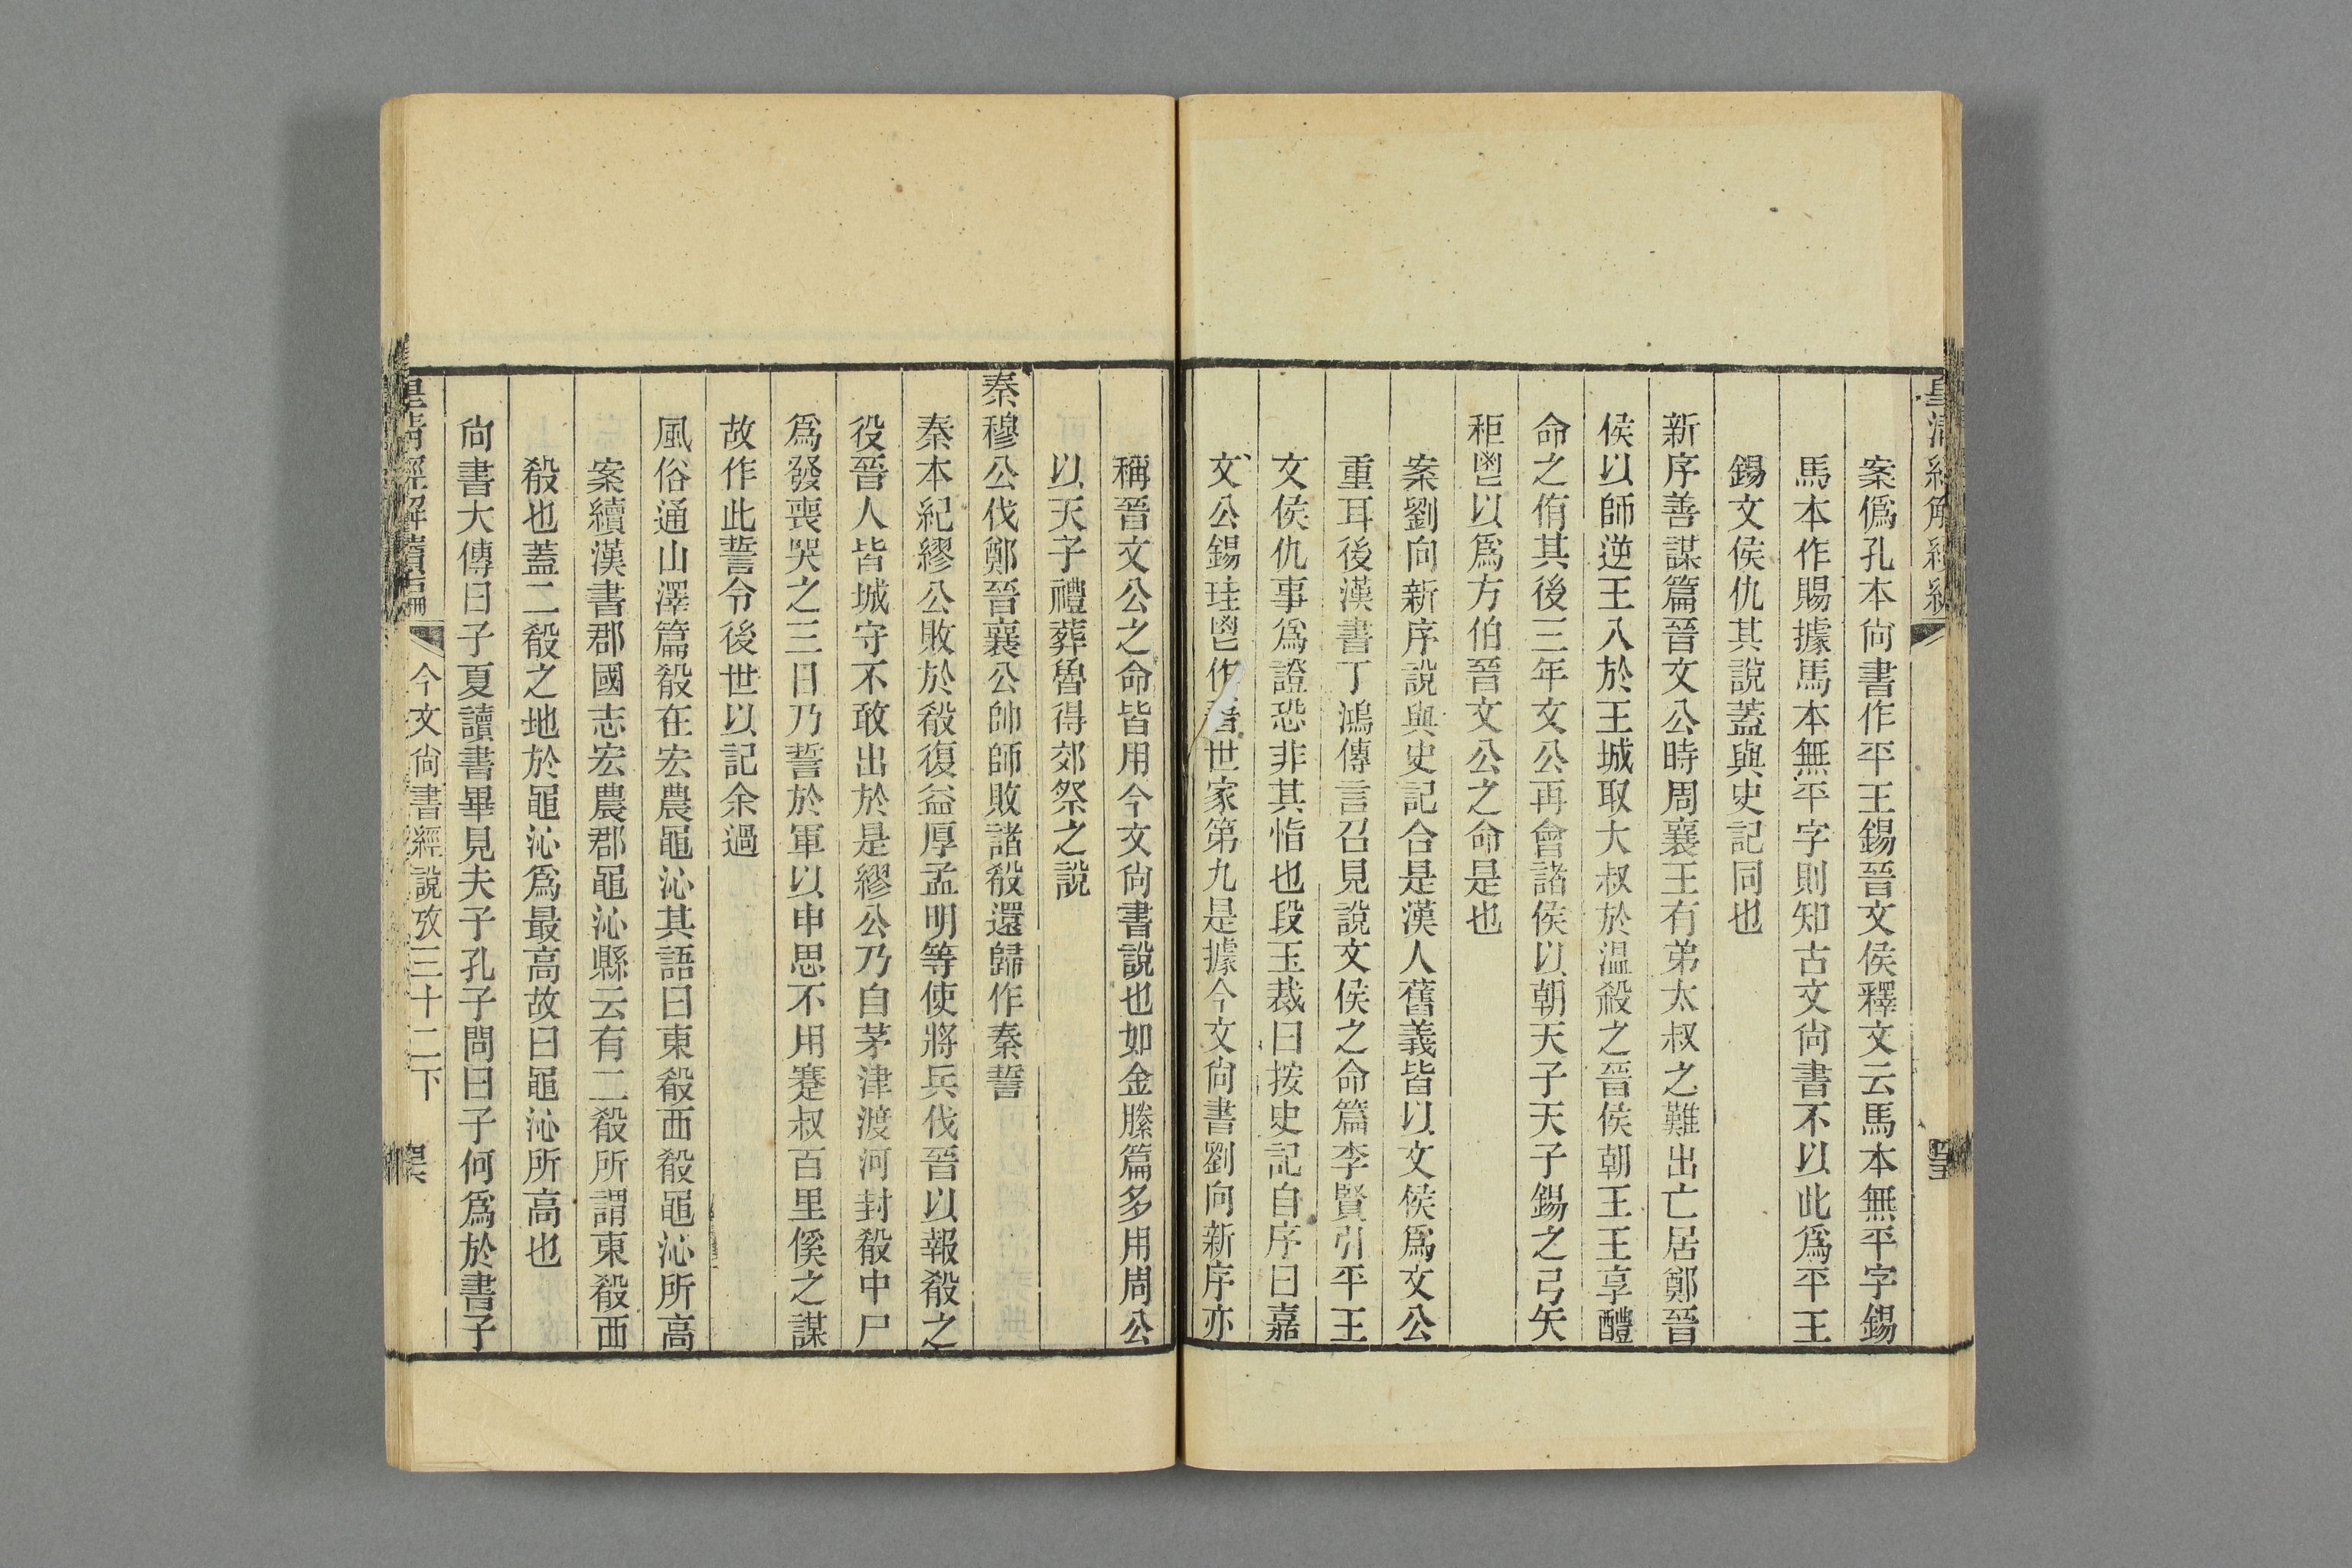 案僞孔本尙書作平王錫晉文侯釋文云馬本無平字錫
馬本作賜據馬本無平字則知古文尙書不以此爲平王
錫文侯仇其說蓋與史記同也
新序善謀篇晉文公時周襄王有弟太叔之難出亡居鄭晉
侯以師逆王入於王城取大叔於温殺之晉侯朝王王享醴
命之侑其後三年文公再會諸侯以朝天子天子錫之弓矢
秬鬯以爲方伯晉文公之命是也
案劉向新序說與史記合是漢人舊義皆以文侯爲文公
重耳後漢書丁鴻傳言召見說文侯之命篇李賢引平王
文侯仇事爲證恐非其恉也段玉裁曰按史記自序曰嘉
文公錫珪鬯作晉世家第九是據今文尙書劉向新序亦
稱晉文公之命皆用今文尙書說也如金縢篇多用周公
以天子禮葬魯得郊祭之說
秦穆公伐鄭晉襄公帥師敗諸殽還歸作秦誓
秦本紀繆公敗於殽復益厚孟明等使將兵伐晉以報殽之
役晉人皆城守不敢出於是繆公乃自茅津渡河封殽中尸
爲發喪哭之三日乃誓於軍以申思不用蹇叔百里傒之謀
故作此誓令後世以記余過
風俗通山澤篇殽在宏農黽沁其語曰東殽西殽黽沁所高
案續漢書郡國志宏農郡黽沁縣云有二殽所謂東殽西
殽也蓋二殽之地於黽沁爲最高故曰黽沁所高也
尙書大傳曰子夏讀書畢見夫子孔子問曰子何爲於書子
皇清經解續編
今文尙書經說攷三十二下